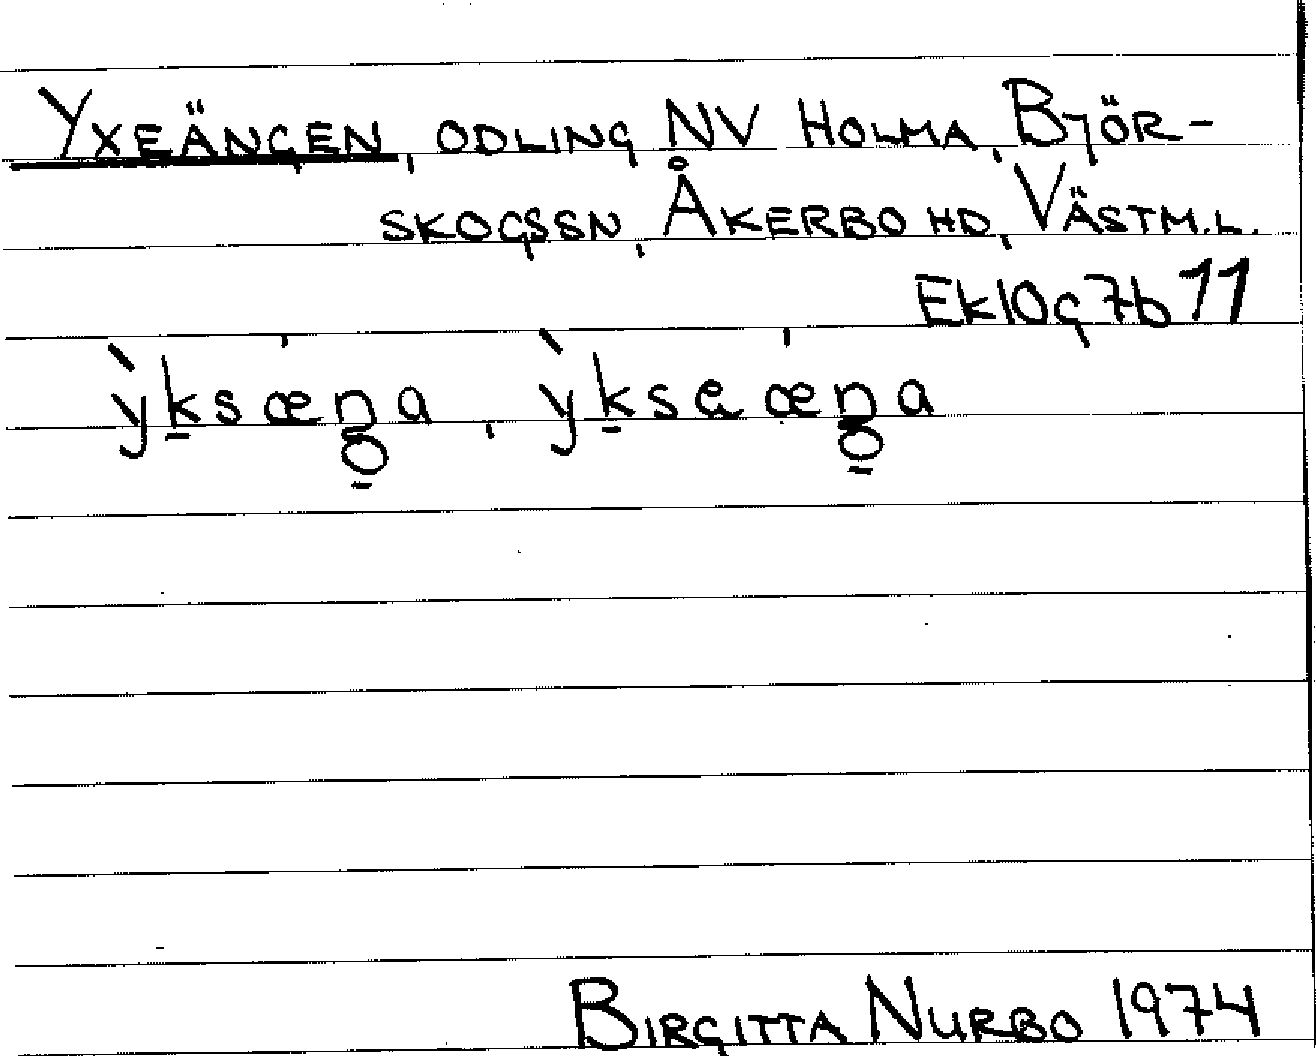 YXEÄNGEN, ODLING NV HOLMA, BJÖR-
SKOGSSN, ÅKERBO HD, VÄSTM.L.
Ek10g7b 11
ỳksæŋa, ỳksaæŋa
BIRGITTA NURBO 1974